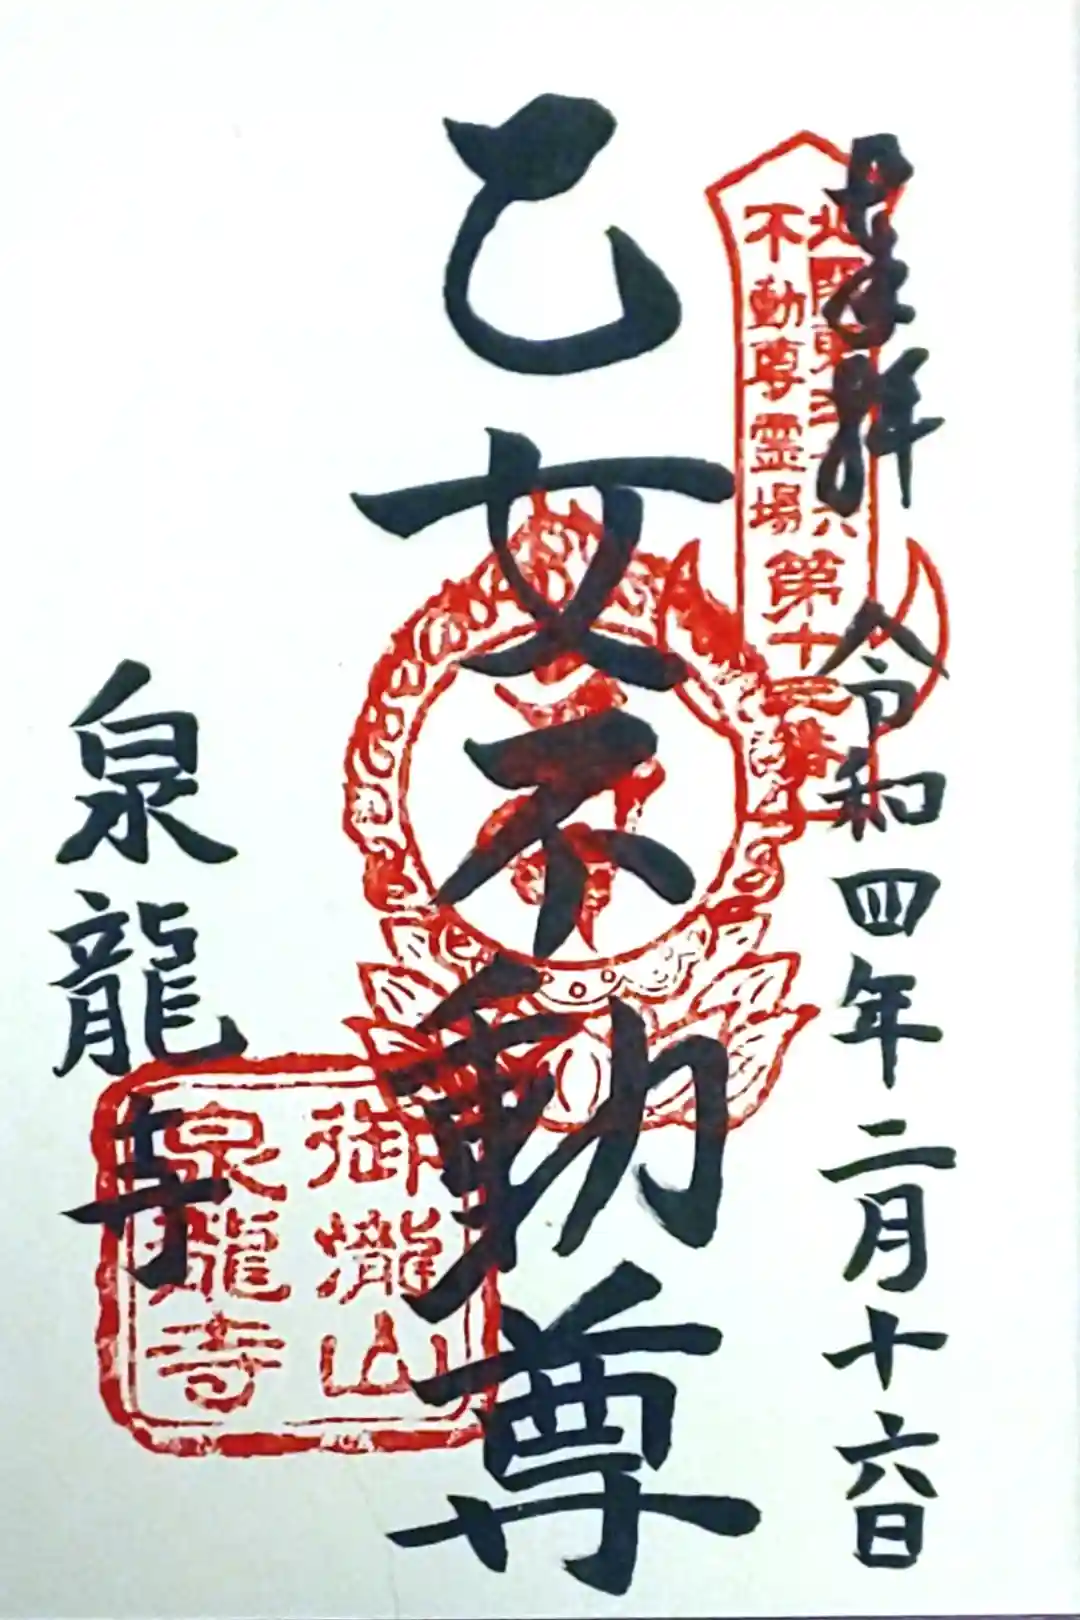 奉拝
令和四年二月十六日
北関東三十六
不動尊霊場
第十三番
乙女不動尊
御瀧山
泉龍寺
泉龍寺